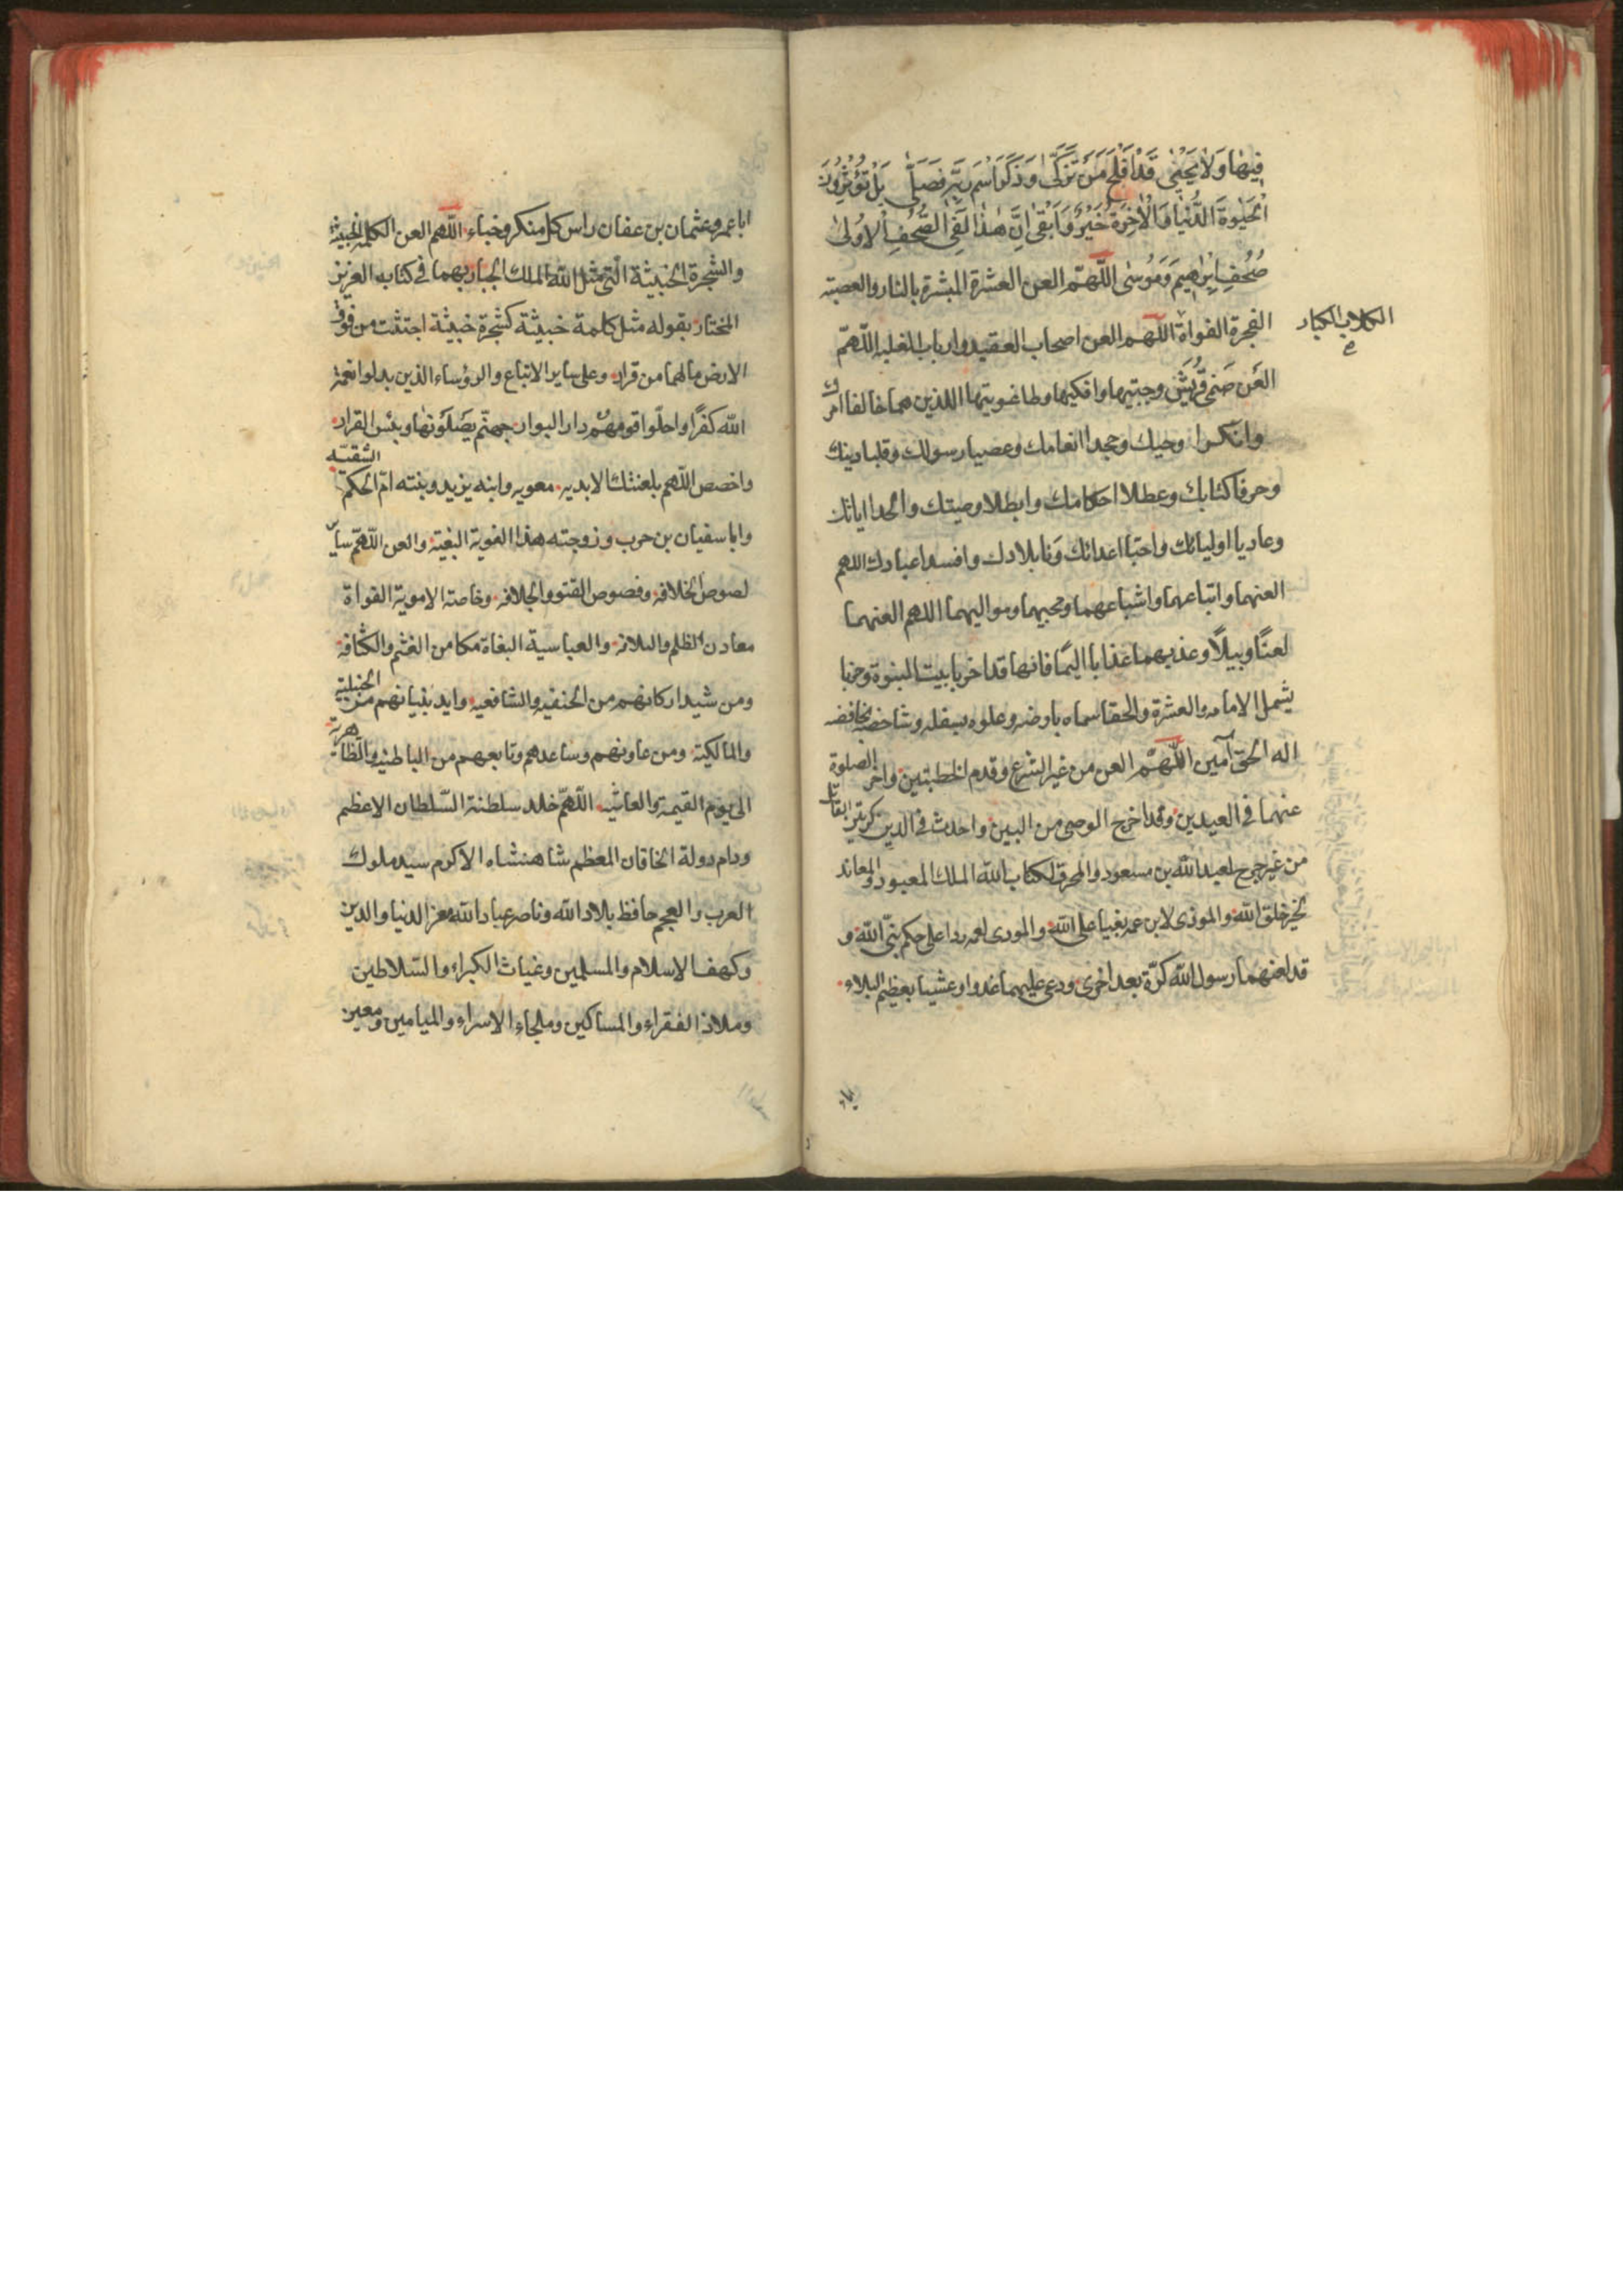 فِيهَا وَلَا يَحْيَىٰ قَدْ أَفْلَحَ مَنْ تَزَكَّىٰ وَذَكَرَ اسْمَ رَبِّهِ فَصَلَّىٰ بَلْ تُؤْثِرُونَ
الْحَيٰوةَ الدُّنْيَا وَالْاٰخِرَةُ خَيْرٌ وَاَبْقىٰ اِنَّ هٰذَا لَفِي الصُّحُفِ الْاُولىٰ
صُحُفِ اِبْرٰهِيمَ وَمُوسٰى اللّهمّ العن العشرة المبشرة بالنار والعصبة
الفجرة الغواة اللّهم العن اصحاب العقبه وارباب الغلبه اللّهمّ
الكلاب الكبار
العَن صَنمي قُرَيْش وجبتيها وافكيها وطاغوتيها اللذين هما خالفا امرك
وانكرا وحيك وجحدا انعامك وعصيا رسولك وقلبا دينك
وحرفا كتابك وعطلا احكامك وابطلا وصيتك والحدا اياتك
وعاديا اوليائك واحبّا اعدائك وبلادك وافسدا عبادك اللهم
العنهما واتباعهما واشياعهما ومحبيهما ومواليهما اللهم العنهما
لعنًا وبيلًا وعذبهما عذابا اليمًا فانهما قد اخربا بيت النبوة
شمل الامامه والعشرة والحقا سماه بارضه وعلوه بسفله وشاخصه بخافضه
اله الحق آمين اللّهمّ العن من غير الشرع وقدم الخطبتين واخر الصلوة
عنهما في العيدين وقد اخرج الوصي من البين واحدث في الدين
من غير جرح لعبد الله بن مسعود والمحرق لكتاب الله الملك المعبود والمعاند
لخير خلق الله والموذى لابن عمه بغيا على الله والمودى لعمه ردا على حكم نبىّ الله و
قد لعنهما رسول الله كرّة بعد اخرى ودعى عليهما غدوا وعشيا بعظيم البلاء
ابا عمرو عثمان بن عفان راس كل منكر وخباء اللّهم العن الكلمة الخبيثة
والشجرة الخبيثة الّتي مثل الله الملك الجبار بهما في كتابه العزيز
المختار بقوله مثل كلمة خبيثة كشجرة خبيثة اجتثت من فوق
الارض مالهما من قرار وعلى ساير الاتباع والرؤساء الذين بدلوا نعمة
الله كفرًا واحلّوا قومهم دار البوار جهنّم يَصْلَوْنها وبئس القرار
واخصص اللّهم بلعنتك الابديه معويه وابنه يزيد وبنته امّ الحكم الشقيّه
وابا سفيان بن حرب وزوجته هند الغوية البغية والعن اللّهمّ ساير
لصوص الخلافه وفصوص العتو والجلافه وخاصة الاموية الغواة
معادن الظلم والبلافه والعباسية البغاة مكامن الغشم والكثافه
ومن شيد اركانهم من الحنفيه والشافعيه وايد بنيانهم من الحنبلية
والمالكية ومن عاونهم وساعدهم وتابعهم من الباطنيه والظاهرية
الى يوم القيمة والغاشيه اللّهمّ خلد سلطنة السّلطان الاعظم
ودام دولة الخاقان المعظم شاهنشاه الاكرم سيد ملوك
العرب والعجم حافظ بلاد الله وناصر عباد الله معز الدنيا والدين
وكهف الاسلام والمسلمين وغياث الكبراء والسّلاطين
وملاذ الفقراء والمساكين وملجاء الاسراء والميامين ومعين